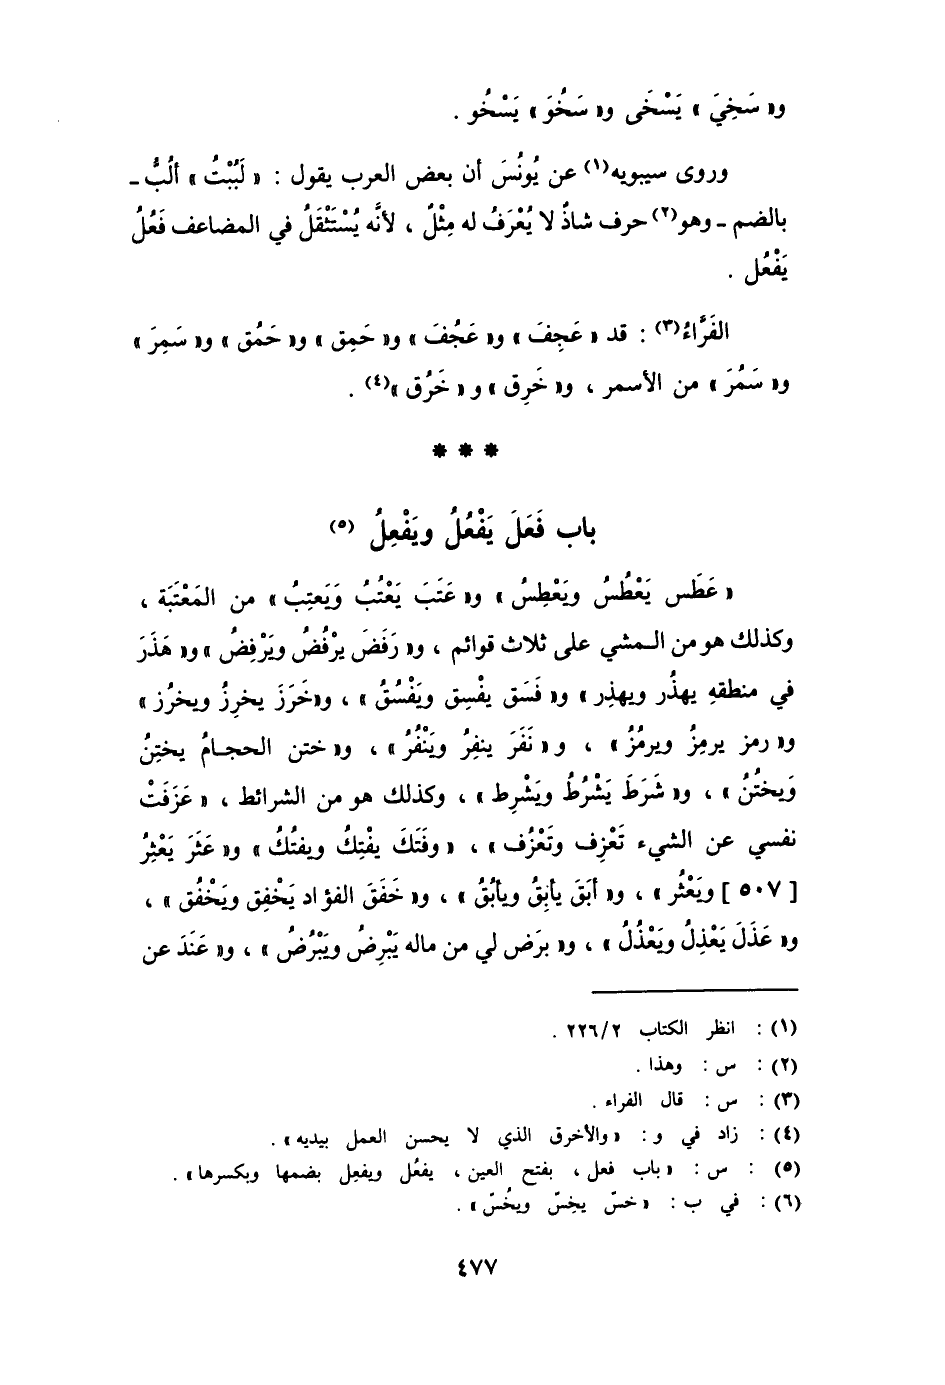 و« سَخِيَ » يَسْخَى و« سَخُوَ » يَسْخُو .
وروى سيبويه(١) عن يُونُسَ أن بعض العرب يقول : « لَبُبْتُ » ألُبُّ ـ
بالضم ـ وهو(٢) حرف شاذٌ لا يُعْرَفُ له مِثْلٌ ، لأنَّه يُسْتَثْقَلُ في المضاعف فَعُلُ
يَفْعُل .
الفَرَّاءُ(٣) : قد « عَجِفَ » و« عَجُفَ » و« حَمِق » و« حَمُق » و« سَمِرَ »
و« سَمُرَ » من الأسمر ، و« خَرِق » و « خَرُق »(٤) .
* * *
باب فَعَلَ يَفْعُلُ ويَفْعِلُ (٥)
« عَطَس يَعْطُسُ ويَعْطِسُ » و« عَتَبَ يَعْتُبُ وَيَعتِبُ » من المَعْتَبَة ،
وكذلك هو من المشي على ثلاث قوائم ، و« رَفَضَ يرْفُضُ ويَرْفِضُ » و« هَذَرَ
في منطقهِ يهذُر ويهذِر » و« فَسَق يفْسِق ويَفْسُقُ » ، و«خَرَزَ يخرِزُ ويخرُز »
و« رمز يرمِزُ ويرمُزُ » ، و « نَفَرَ ينفِرُ ويَنْفُرُ » ، و« ختن الحجامُ يختِنُ
وَيختُنُ » ، و« شَرَطَ يَشْرُطُ ويَشْرِط » ، وكذلك هو من الشرائط ، « عَزَفَتْ
نفسي عن الشيء تَعْزِف وتَعْزُف » ، « وفَتَكَ يفْتِكُ ويفتُكُ » و« عَثَرَ يَعْثِرُ
[ ٥٠٧ ] ويَعْثُر » ، و« أبَقَ يأبِقُ ويأبُقُ » ، و« خَفَقَ الفؤاد يَخْفِق ويَخْفُق » ،
و« عَذَلَ يَعْذِلُ ويَعْذُلُ » ، و« برَض لي من ماله يَبْرِضُ ويَبْرُضُ » ، و« عَنَدَ عن
(١) : انظر الكتاب ٢/‏٢٢٦ .
(٢) : س : وهذا .
(٣) : س : قال الفراء .
(٤) : زاد في و : «والأخرق الذي لا يحسن العمل بيديه» .
(٥) : س : «باب فعل ، بفتح العين ، يفعُل ويفعِل بضمها وبكسرها» .
(٦) : في ب : «خسّ يخِسّ ويخُسّ» .
٤٧٧